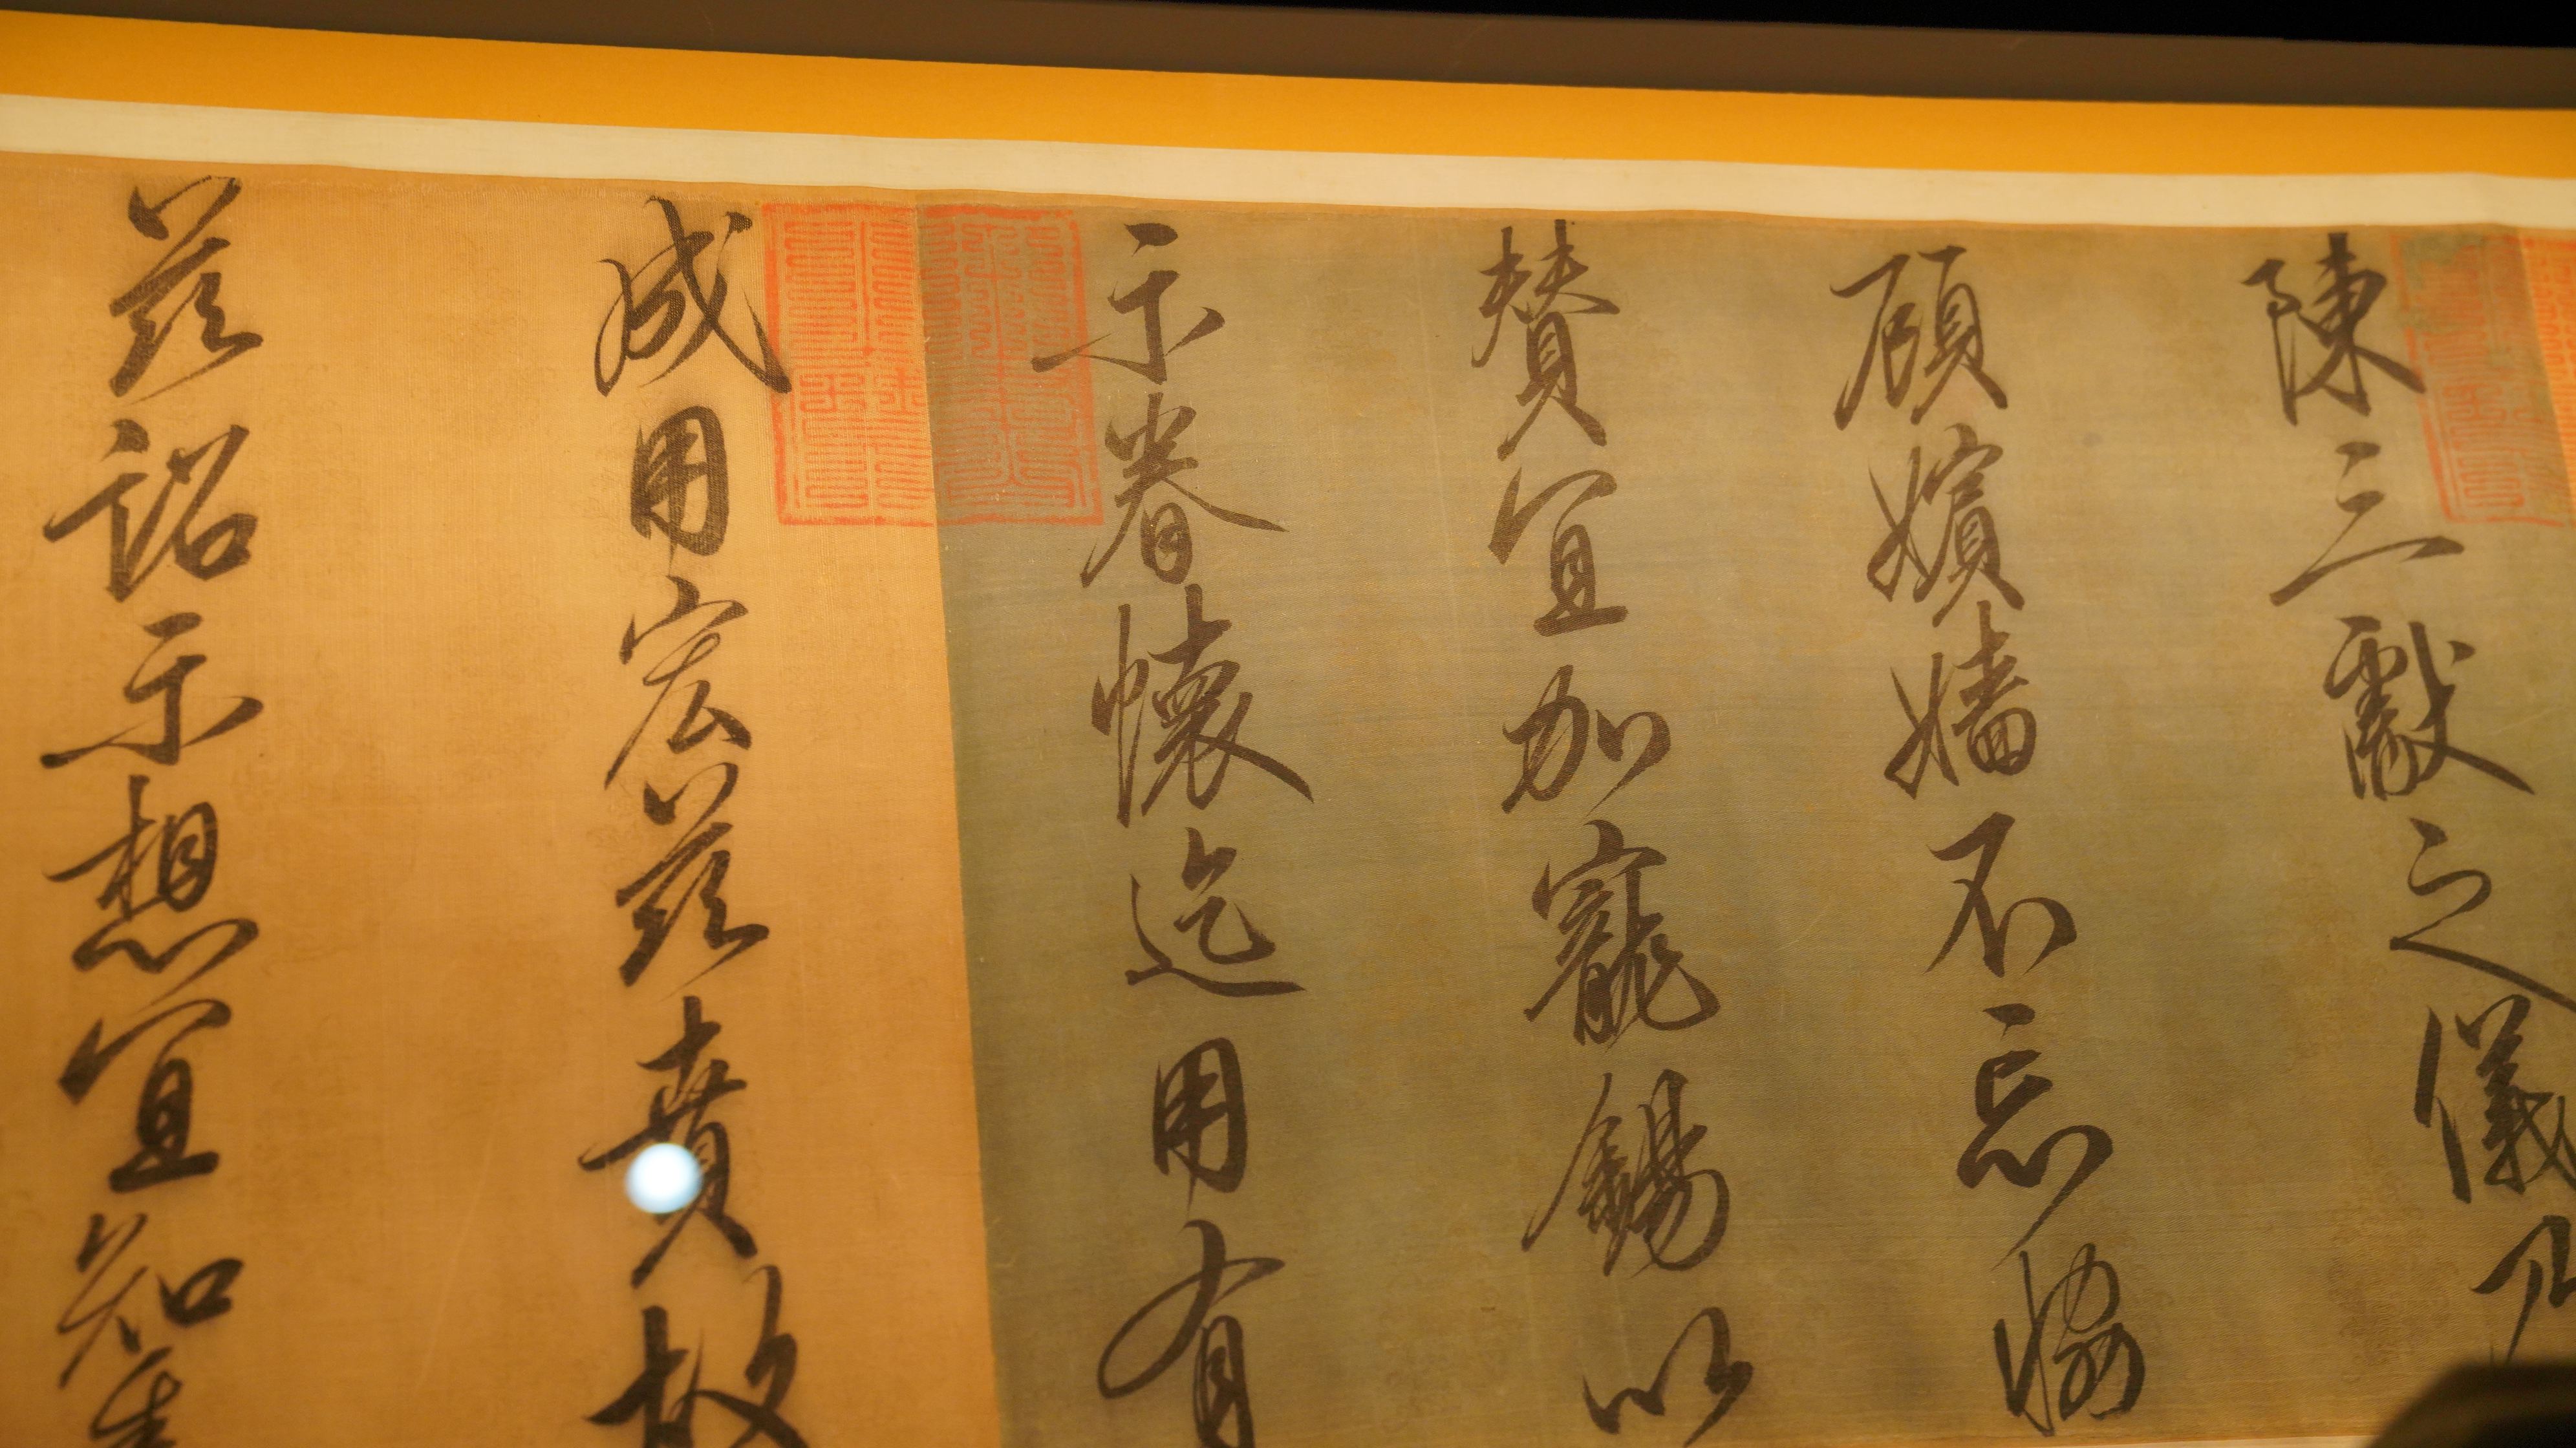 陳三獻之儀乃
顧嬪嬙不忘協
賛宜加寵錫以
示眷懷迄用有
成用宏茲賁故
茲詔示想宜知悉